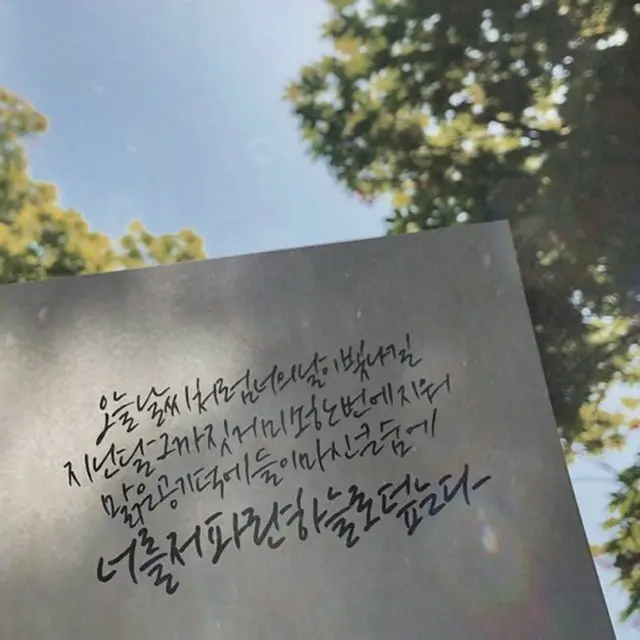 오늘 날씨처럼 너의 날이 빛나길
지난달 그까짓 저 한번에 지워
맑은 공기 덕에 들이마신 큰 숨에
너를 저 파란 하늘로 덮는다-